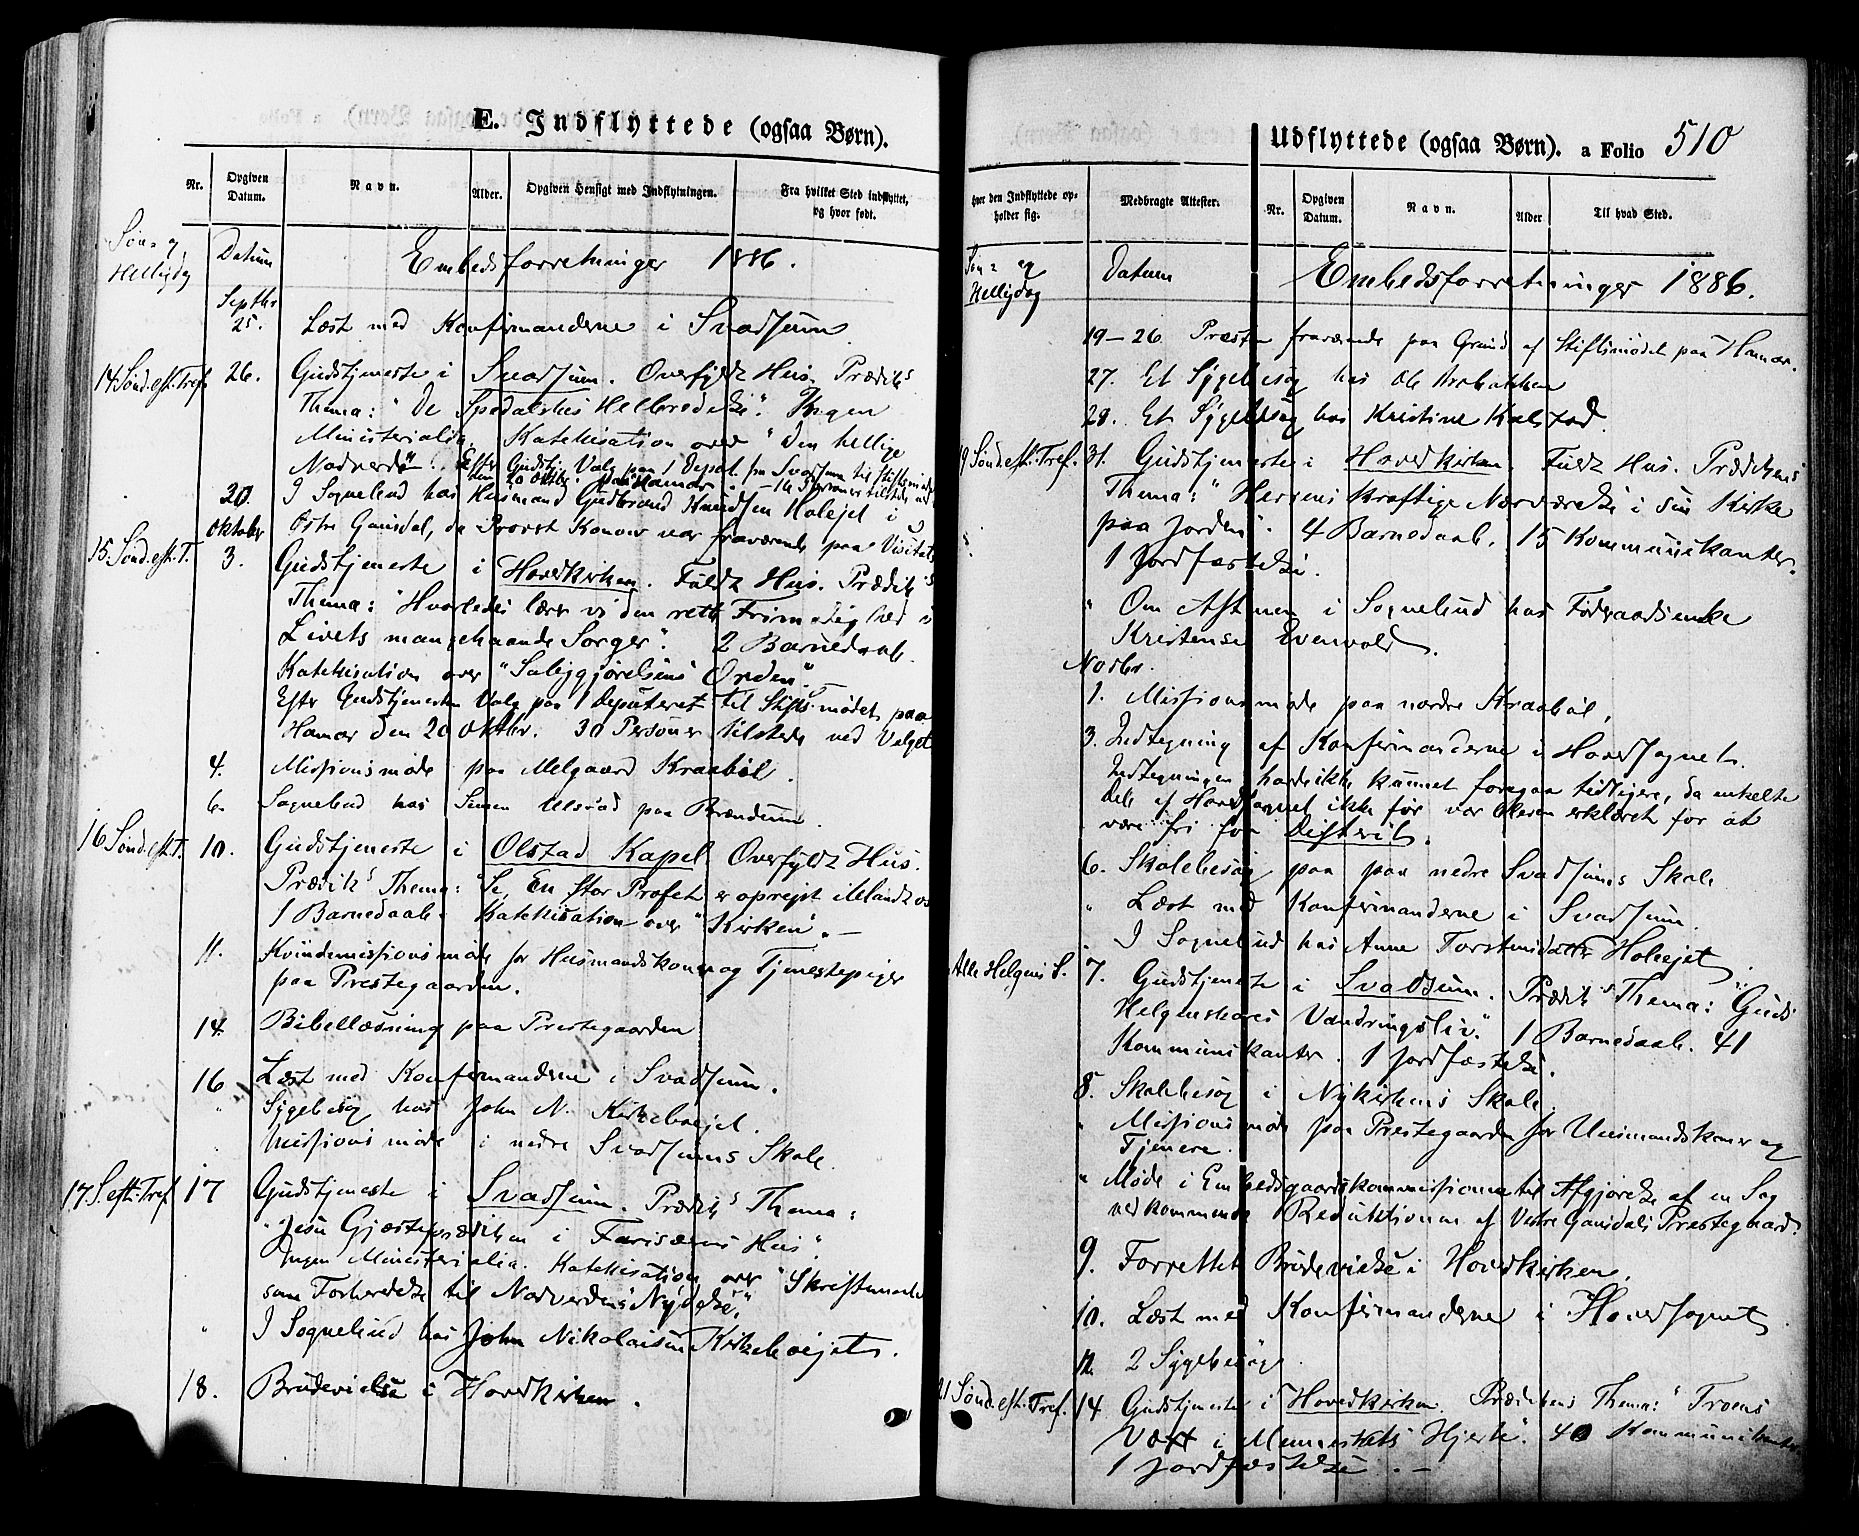 E. Indflyttede (ogsaa Børn).
Nr.
Opgiven Datum.
Navn.
Alder.
Opgiven Hensigt med Indflytningen.
Fra hvilket Sted indflyttet, og hvor født.
Søn- og Helligdg
Datum
Embedsforretninger 1886.
Septbr
25. Læst med Konfirmanderne i Svadsum
14 Sønd. eft. Tref. 26. Gudstjeneste i Svadsum. Overfyldt Hus. Prædiks
Thema: "De Spedalskes Helbredelse". Ingen
Ministerialia. Katekisation over "Den hellige
Nadverde". Efter Gudstj. Valg paa 1 Deput. fra Svadsum til Stiftsmødet
den 20 Oktbr. paa Hamar. - 14 Personer tilstede ved
20. I Sognebud hos Husmand Gudbrand Knudsen Holejet i
Oktober
Østre Gausdal, da Provst Konow var fraværende paa Visitats
15. Sønd. eft. T. 3. Gudstjeneste i Hovedkirken. Fuldt Hus. Prædik's
Thema: "Hvorledes lærer vi den rette Frimodighed i
Livets mangehaande Sorger". 2 Barnedaab.
Katekisation over "Saliggjørelsens Orden".
Efter Gudstjenesten Valg paa 1 Deputeret til Stiftsmødet paa
Hamar den 20 Oktbr. 30 Personer tilstede ved Valget
4. Missionsmøde paa Melgaard Kraabøl.
6. Sognebud hos Simen Ulsrud paa Brændum.
16 Sønd. eft. T. 10. Gudstjeneste i Olstad Kapel Overfyldt Hus.
Prædik's Thema: "Se, En stor Profet er oprejst iblandt os
1 Barnedaab. Katekisation over "Kirken". -
11. Kvindemissionsmøde for Husmandskoner og Tjenestepiger
paa Prestegaarden.
14. Bibellæsning paa Prestegaarden
16 Læst med Konfirmanderne i Svadsum.
" Sygebesøg hos John N. Kirkebøejet.
" Missionsmøde i nedre Svadsums Skole.
17. S. eft. Tref. 17 Gudstjeneste i Svadsum. Prædik's Thema:
"Jesu Gjæsteprædiken i Farisæerens Hus".
Ingen Ministerialia. Katekisation over "Skriftemaalet
som Forberedelse til Nadverdens Nydelse."
" I Sognebud hos John Nikolaisen Kirkebøejet.
18. Brudevielse i Hovedkirken.
Udflyttede (ogsaa Børn). a Folio 510
hvor den Indflyttede opholder sig.
Medbragte Attester.
Nr.
Opgiven Datum.
Navn.
Alder
Til hvad Sted.
Søn- og Helligdag
Datum
Embedsforretninger 1886.
19-26 Præsten fraværende paa Grund af Stiftsmødet paa Hamar.
27. Et Sygebesøg hos Ole
28. Et Sygebesøg hos Kristine Kalstad.
19 Sønd. eft. Tref. 31. Gudstjeneste i Hovedkirken. Fuldt Hus. Prædikens
Thema: "Herrens kraftige Nærværelse i sin Kirke
paa Jorden". 4 Barnedaab. 15 Kommunikanter.
1 Jordfæstelse.
" Om Aftenen i Sognebud hos Føderaadsenke
Kristense Evenvold.
Novbr.
1. Missionsmøde paa nordre Kraabøl.
3. Indtegning af Konfirmanderne i Hovedsognet.
Indtegningen havde ikke kunnet foregaa tidligere, da enkelte
Dele af Hovedsognet ikke før var bleven erklæret for at
være fri for Difterit.
6. Skolebesøg paa paa nedre Svadsums Skole
" Læst med Konfirmanderne i Svadsum
I Sognebud hos Anne Torstensdatter Holejet.
Alle Helgens S. 7. Gudstjeneste i Svadsum. Prædik's Thema: "Guds
Helgenskares Vandringsliv." 1 Barnedaab. 41
Kommunikanter. 1 Jordfæstelse.
8. Skolebesøg i Nykirkens Skole
" Missionsmøde paa Prestegaarden for Husmandskoner og
Tjenere.
" Møde i Embedsgaardskommissionen til Afgjørelse af en Sag
vedkommende Reduktionen af Vestre Gausdals Prestegaard.
9. Forrettet Brudevielse i Hovedkirken.
10. Læst med Konfirmanderne i Hovedsognet.
12. 2 Sygebesøg.
21 Sønd. eft. Tref. 14. Gudstjeneste i Hovedkirken. Prædikens Thema: "Troens
Væxt i Menneskets Hjerte". 40 Kommunikanter.
1 Jordfæstelse. -